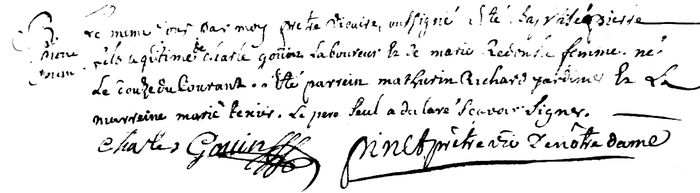 Le meme jour par moy prêtre vicaire soussigné a été baptisé pierre
Pierre
fils legitime de charle goüin Laboureur Et de marie Redon sa femme. né
Gouin
Le douze du Courant. a Eté parrein mathurin Richard jardinier Et La
marreine marie tenier. Le pere seul a declaré scavoir signer.
Charles Goüin pinet prêtre vic de nôtre dame